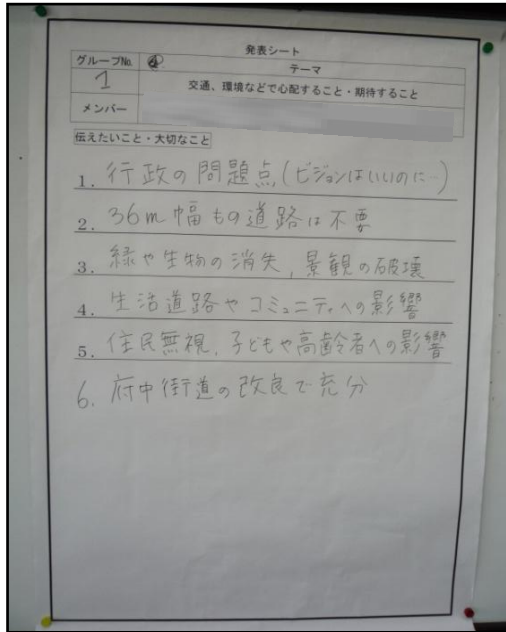 発表シート
グループNo. ④ テーマ
1 交通、環境などで心配すること・期待すること
メンバー
伝えたいこと・大切なこと
1. 行政の問題点(ビジョンはいいのに…)
2. 36m幅もの道路は不要
3. 緑や生物の消失,景観の破壊
4. 生活道路やコミュニティへの影響
5. 住民無視,子どもや高齢者への影響
6. 府中街道の改良で充分